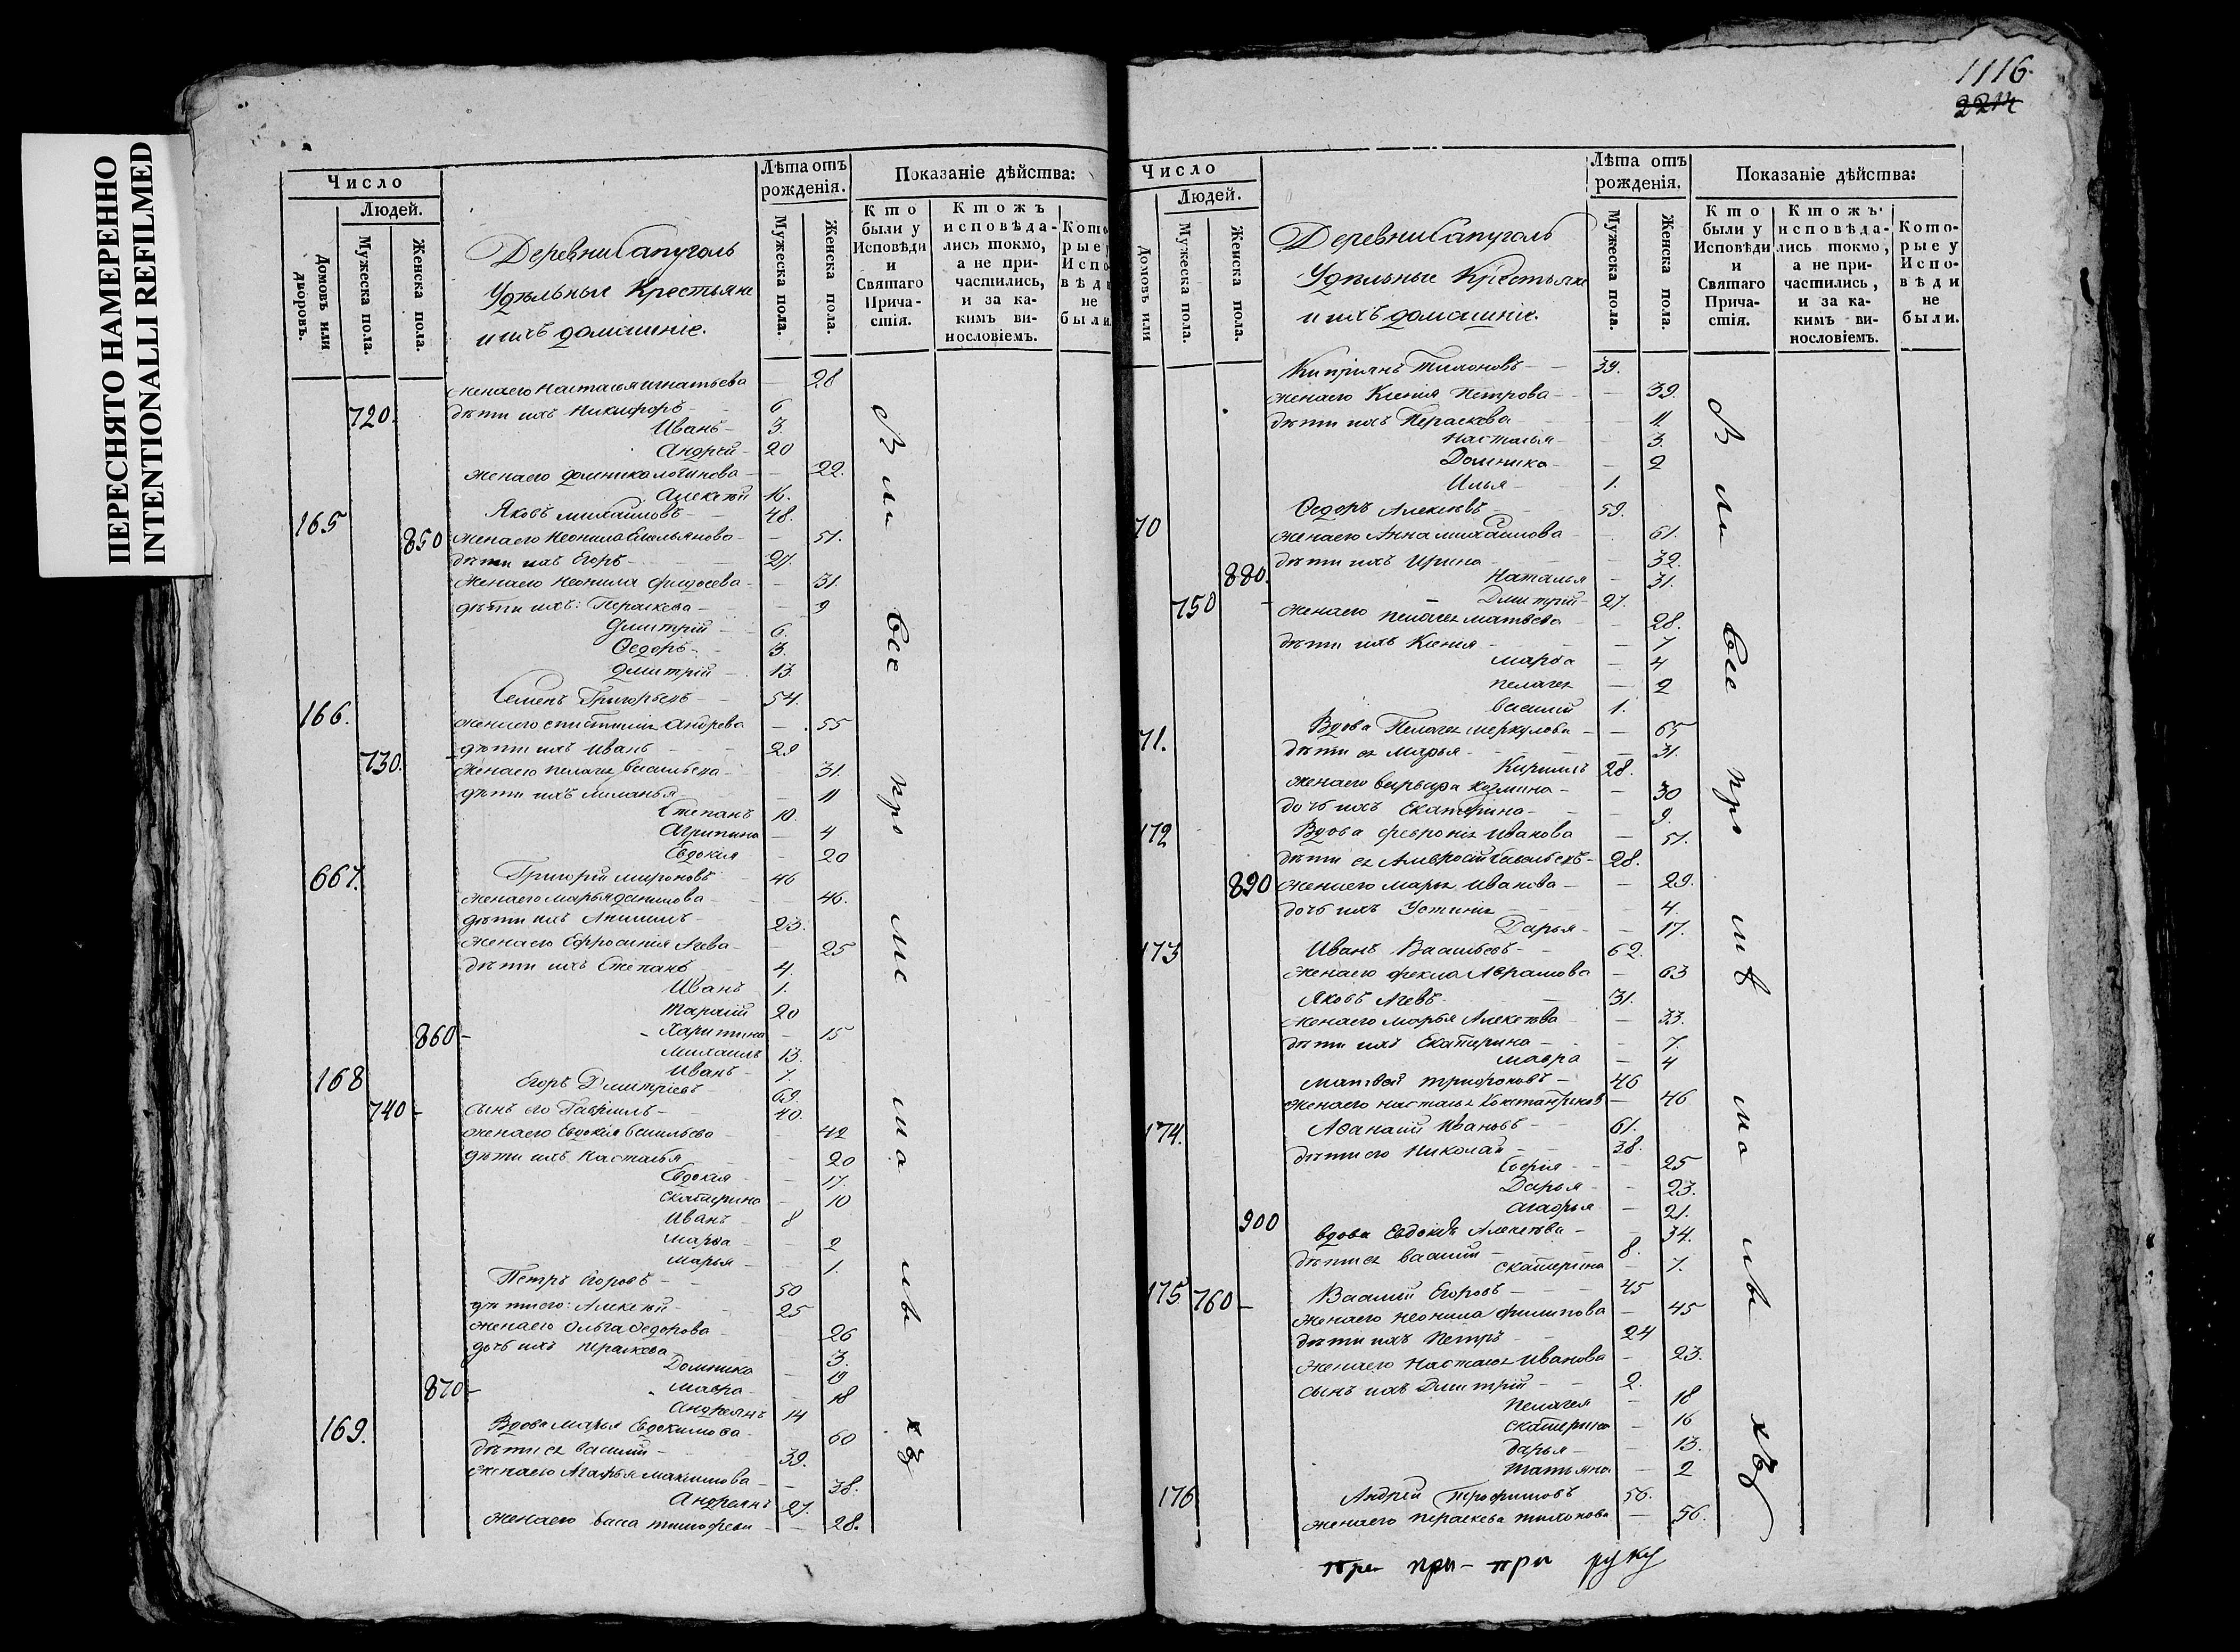 ПЕРЕСНЯТО НАМЕРЕННО
INTENTIONALLI REFILMED
Число
Людей.
Домовъ или дворовъ.
Мужеска пола.
Женска пола.
Лѣта отъ рожденія.
Мужеска пола.
Женска пола.
Показаніе дѣйства:
Кто были у Исповѣди и Святаго Прича-стія.
Ктожъ исповѣда-лись токмо, а не при-частились, и за ка-кимъ ви-нословіемъ.
Кото рые у Испо вѣди не были
Деревни Сапуголь
Удѣльные Крестьяне
и ихъ домашніе.
жена его Настасья Игнатьева — 28
720. дѣти ихъ Никифоръ 6
Иванъ 3.
Андрей 20
жена его Домника Логинова — 22.
Алексѣй 16.
165 Яковъ Михаиловъ 48.
850 жена его Неонила Емельянова — 51.
дѣти ихъ Егоръ 27.
жена его Неонила Федосѣева — 31.
дѣти ихъ: Пераскева — 9
Дмитрій 6.
Ѳедоръ 3.
Дмитрій 13
166. Семенъ Григорьевъ 54.
жена его Андреева — 55
730. дѣти ихъ Иванъ 29
жена его Пелагея Васильева — 31.
дѣти ихъ Меланья — 11
Степанъ 10.
Агрипина — 4
Евдокия — 20
667. Григорій Мироновъ 46
жена его Марья Данилова — 46.
дѣти ихъ 23.
жена его Ефросинія — 25
дѣти ихъ Степанъ 4.
Иванъ 1.
Тарасій 20
860 Харитина — 15
Михаилъ 13.
Иванъ 7.
168 Егоръ Дмитріевъ 69.
740 сынъ его Гавріилъ 40.
жена его Евдокія Васильева — 42
дѣти ихъ Настасья — 20
Евдокия — 17.
Екатерина — 10
Иванъ 8
Марѳа — 2
Марья — 1.
Петръ Егоровъ 50
дѣти его: Алексѣй 25
жена его Ольга Ѳедорова — 26
дочь ихъ Пераскева — 3.
Домника — 19
870 Мавра — 18
Андреянъ 14
169. Вдова Марья Евдокимова — 60
дѣти ея Василій 39.
жена его Агафья Максимова — 38.
Андреянъ 27.
жена его Васса Тимофеева — 28.
1116.
2214
Число
Людей.
Домовъ или
Мужеска пола.
Женска пола.
Лѣта отъ рожденія.
Мужеска пола.
Женска пола.
Показаніе дѣйства:
Кто были у Исповѣди и Святаго Прича-стія.
Ктожъ исповѣда-лись токмо, а не при-частились, и за ка-кимъ ви-нословіемъ.
Кото-рые у Испо-вѣди не были.
Деревни Сапуголь
Удѣльные Крестьяне
и ихъ домашніе.
Кипріянъ 39.
жена его Ксенія Петрова — 39.
дѣти ихъ Пераскева — 11
Настасья — 3.
Домника — 2
Илья 1.
70 Ѳедоръ Алексѣевъ 59.
жена его Анна Михайлова — 61.
дѣти ихъ Ирина — 32.
880. Наталья — 31.
750 Дмитрій 27.
жена его Пелагея Матвѣева — 28.
дѣти ихъ Ксенія — 7
Марѳа — 4
Пелагея — 2
Василій 1.
71. Вдова Пелагея Меркулова — 65
дѣти ея Марья — 31.
Кирилъ 28.
жена его Варвара Козмина — 30
дочь ихъ Екатерина — 9.
172 Вдова Февронія Иванова — 51.
дѣти ея Амвросій Савельевъ 28.
890 жена его Марья Иванова — 29.
дочь ихъ Устинія — 4.
Дарья — 17.
173 Иванъ Васильевъ 62.
жена его Фекла Абрамова — 63
Яковъ 31.
жена его Марья Алексѣева — 33.
дѣти ихъ Екатерина — 7.
Мавра — 4
Матвей Трифоновъ 46
жена его Настасья Константинов — 46
174. Аѳанасій Ивановъ 61.
дѣти его Николай 38.
Софія — 25
Дарья — 23.
Агафья — 21.
900 вдова Евдокія Алексѣева — 34.
дѣти ея Василій 8.
Екатерина — 7.
175 760 Василій Егоровъ 45
жена его Неонила Филипова — 45
дѣти ихъ Петръ 24
жена его Настасья Иванова — 23.
сынъ ихъ Дмитрій 2.
Пелагея — 18
Екатерина — 16
Дарья — 13.
Татьяна — 2
176 Андрей Трофимовъ 56.
жена его Пераскева Тихонова — 56.
при при руку